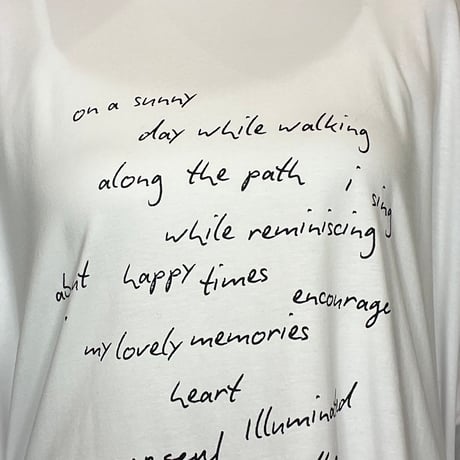 on a sunny
day while walking
along the path i
sing
while reminiscing
about happy times
encourage
my lovely memories
heart
Illuminated